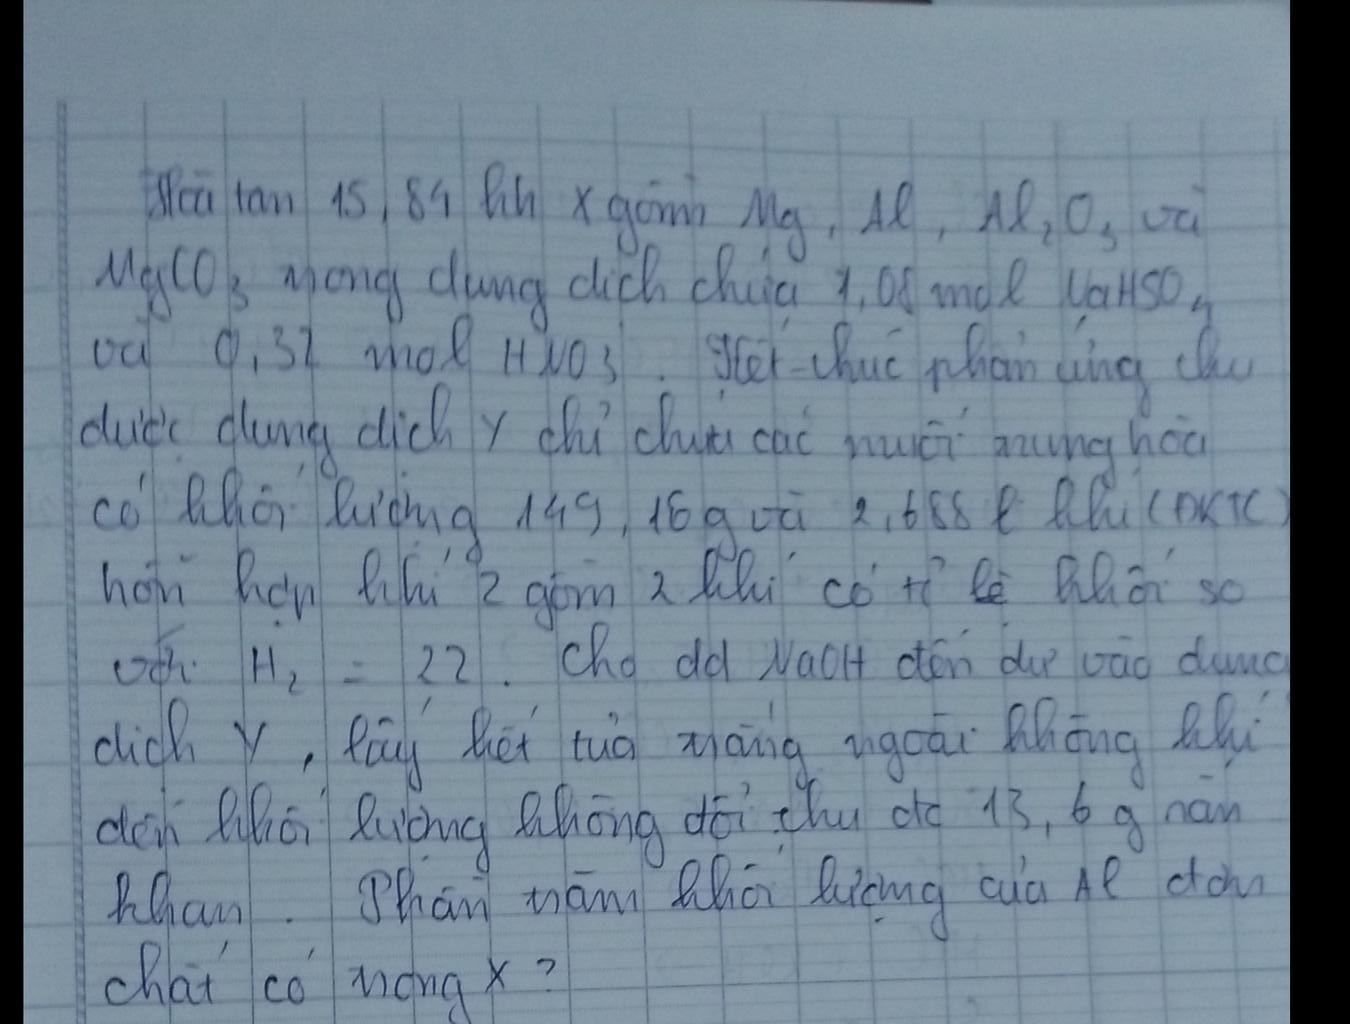 Hòa tan 15,84 hh X gồm Mg, Al, Al₂O₃ và
MgCO₃ trong dung dịch chứa 1,08 mol NaHSO₄
và 0,32 mol HNO₃. Kết thúc phản ứng thu
được dung dịch Y chỉ chứa các muối trung hòa
có khối lượng 149,16g và 2,688 l khí (ĐKTC)
hỗn hợp khí Z gồm 2 khí có tỉ lệ khối so
với H₂ = 22. Cho dd NaOH đến dư vào dung
dịch Y, lấy kết tủa nung ngoài không khí
đến khối lượng không đổi thu đc 13,6 g rắn
khan. Phần trăm khối lượng của Al đơn
chất có trong X?